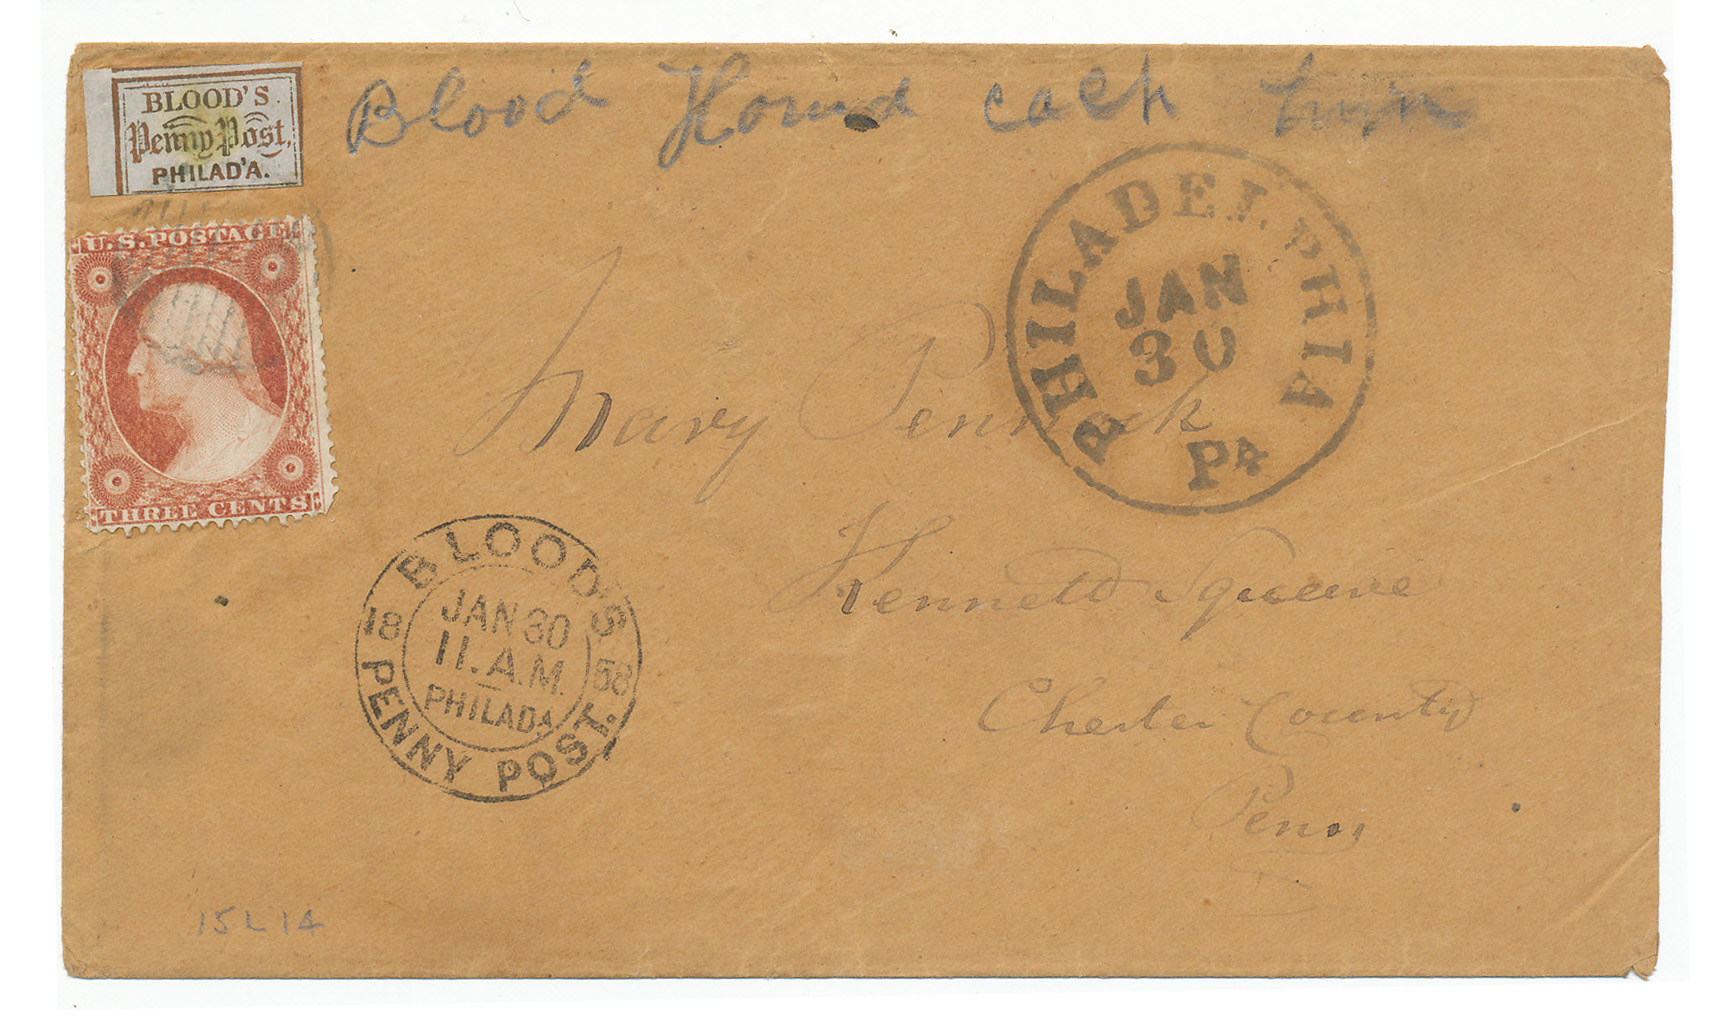 BLOOD'S
Penny Post,
PHILAD'A.
Blood Hound cach
U.S. POSTAGE
THREE CENTS
PHILADELPHIA
JAN
30
PA
Mary Pennock
Kennett Square
Chester County
Penn
BLOOD'S
JAN 30
18 11. A.M. 58
PHILADA
PENNY POST.
15L14